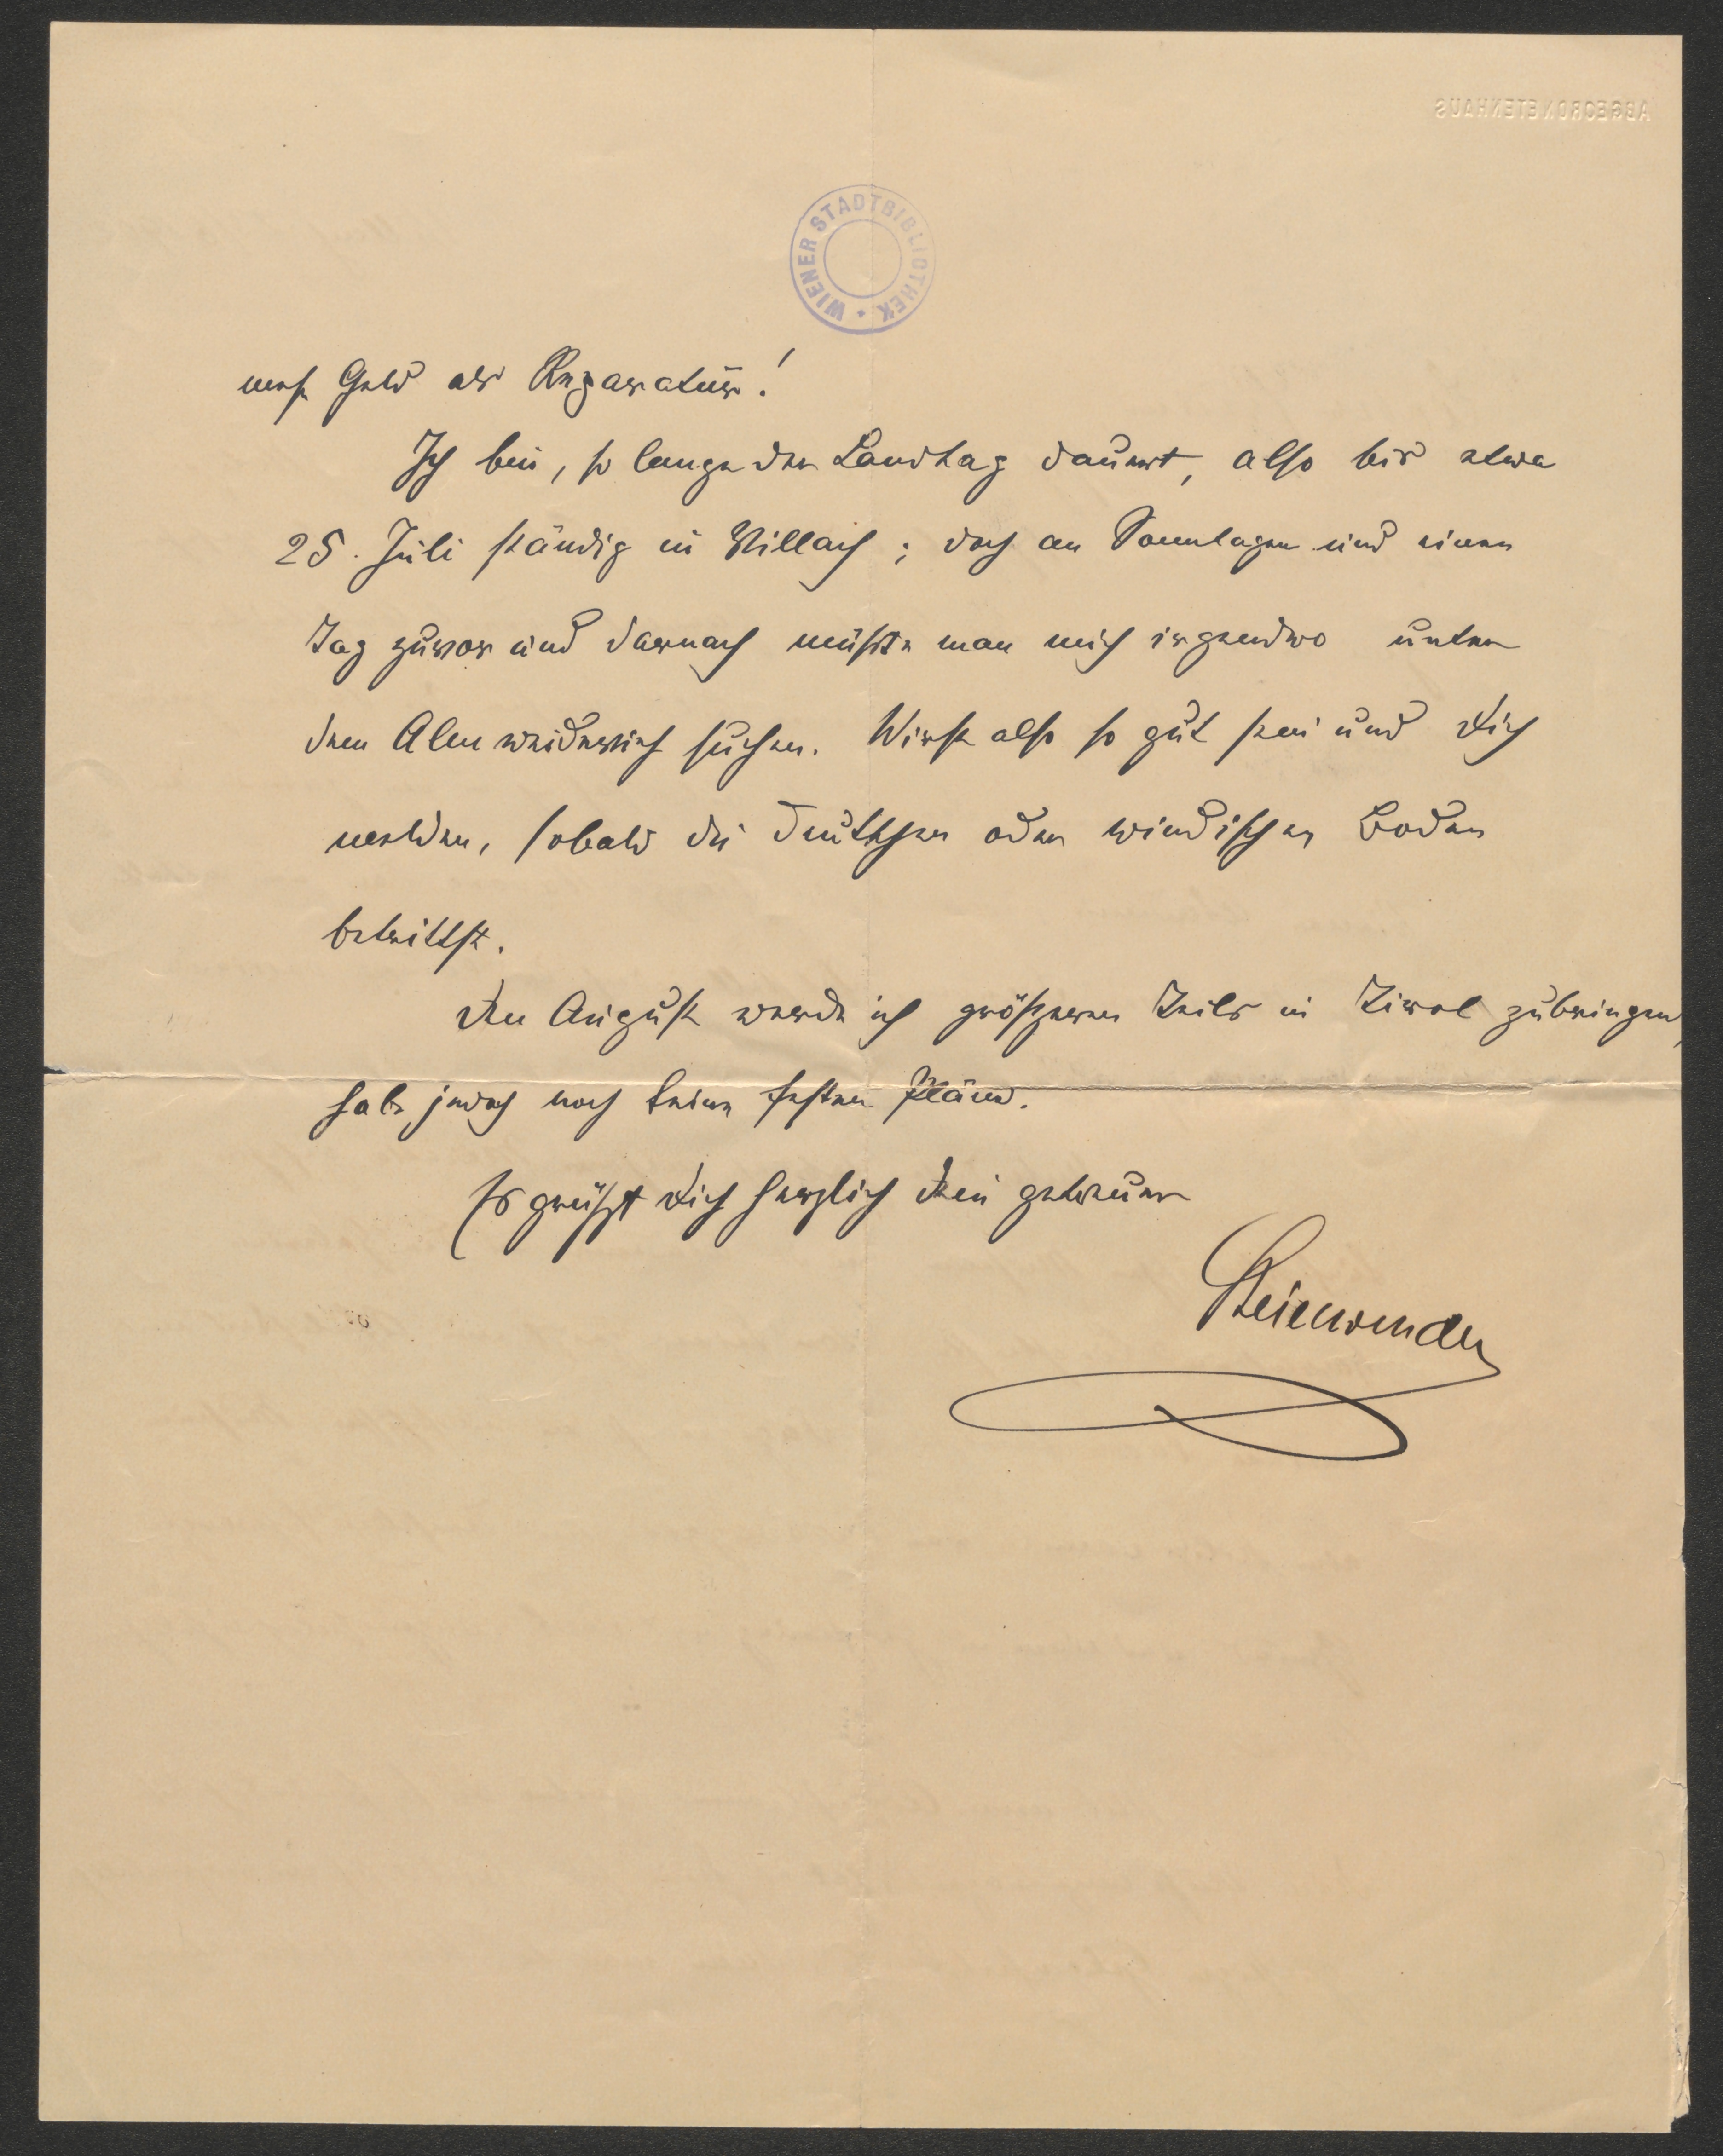 ABGEORDNETENHAUS
WIENER STADTBIBLIOTHEK
mehr Geld als Reparatur!
Ich bin, so lange der Landtag dauert, also bis etwa
25. Juli ständig in Villach; doch an Sonntagen und einen
Tag zuvor und darnach müßte man mich irgendwo unter
dem Almweidevieh suchen. Wirst also so gut sein und Dich
melden, sobald du deutschen oder windischen Boden
betrittst.
Den August werde ich größeren Teils in Tirol zubringen,
habe jedoch noch keine festen Pläne.
Es grüßt Dich herzlich Dein getreuer
Steinwender